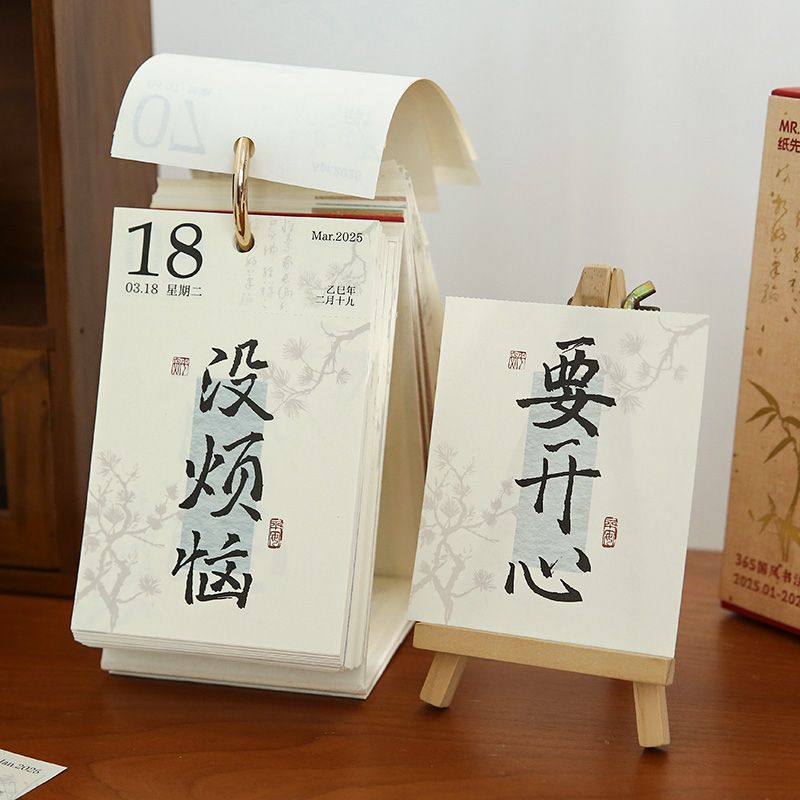 18
Mar.2025
03.18 星期二
乙巳年
二月十九
没烦恼
要开心
MR.
纸先
365国风书法
2025.01-202
Jan.2025